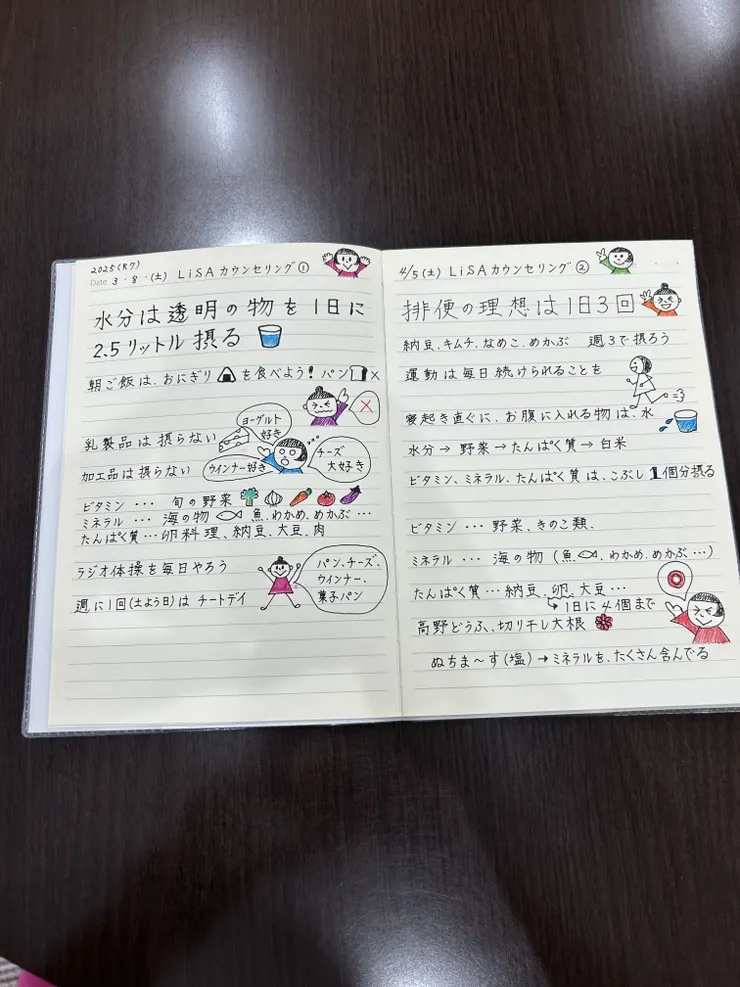 2025(R7)
Date 3・8・(土) LiSAカウンセリング①
水分は透明の物を1日に
2.5リットル摂る
朝ご飯は、おにぎりを食べよう! パン×
×
ヨーグルト
好き
乳製品は摂らない
加工品は摂らない
ウインナー好き
チーズ
大好き
ビタミン … 旬の野菜
ミネラル … 海の物 魚、わかめ、めかぶ…
たんぱく質…卵料理、納豆、大豆、肉
ラジオ体操を毎日やろう
週に1回(土よう日)は チートデイ
パン、チーズ、
ウインナー、
菓子パン
4/5(土) LiSAカウンセリング②
排便の理想は1日3回
納豆、キムチ、なめこ、めかぶ 週3で摂ろう
運動は毎日続けられることを
寝起き直ぐに、お腹に入れる物は、水
水分→野菜→たんぱく質→白米
ビタミン、ミネラル、たんぱく質は、こぶし1個分摂る
ビタミン … 野菜、きのこ類、
ミネラル … 海の物(魚、わかめ、めかぶ…)
たんぱく質…納豆、卵、大豆…
↳1日に4個まで
高野どうふ、切り干し大根
ぬちま〜す(塩)→ミネラルを、たくさん含んでる